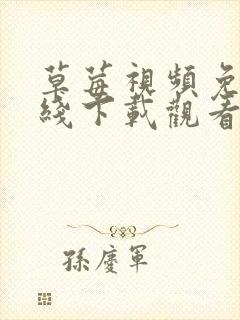 草莓視頻免
綫下載觀看
孫慶軍